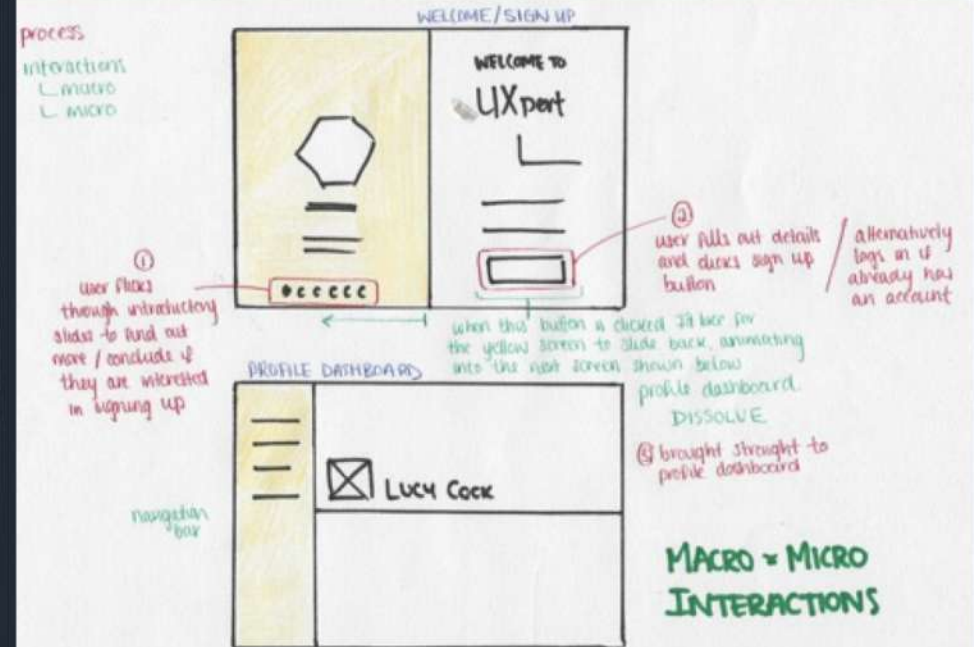 WELCOME/SIGN UP
process
interactions
macro
micro
WELCOME TO
UXpert
①
user flicks
through introductory
slides to find out
more / conclude if
they are interested
in signing up
②
user fills out details
and clicks sign up
button
/ alternatively
logs in if
already has
an account
when this button is clicked I'd like for
the yellow screen to slide back, animating
into the next screen shown below
profile dashboard.
DISSOLVE
③ brought straight to
profile dashboard
PROFILE DASHBOARD
LUCY COCK
navigation
bar
MACRO & MICRO
INTERACTIONS